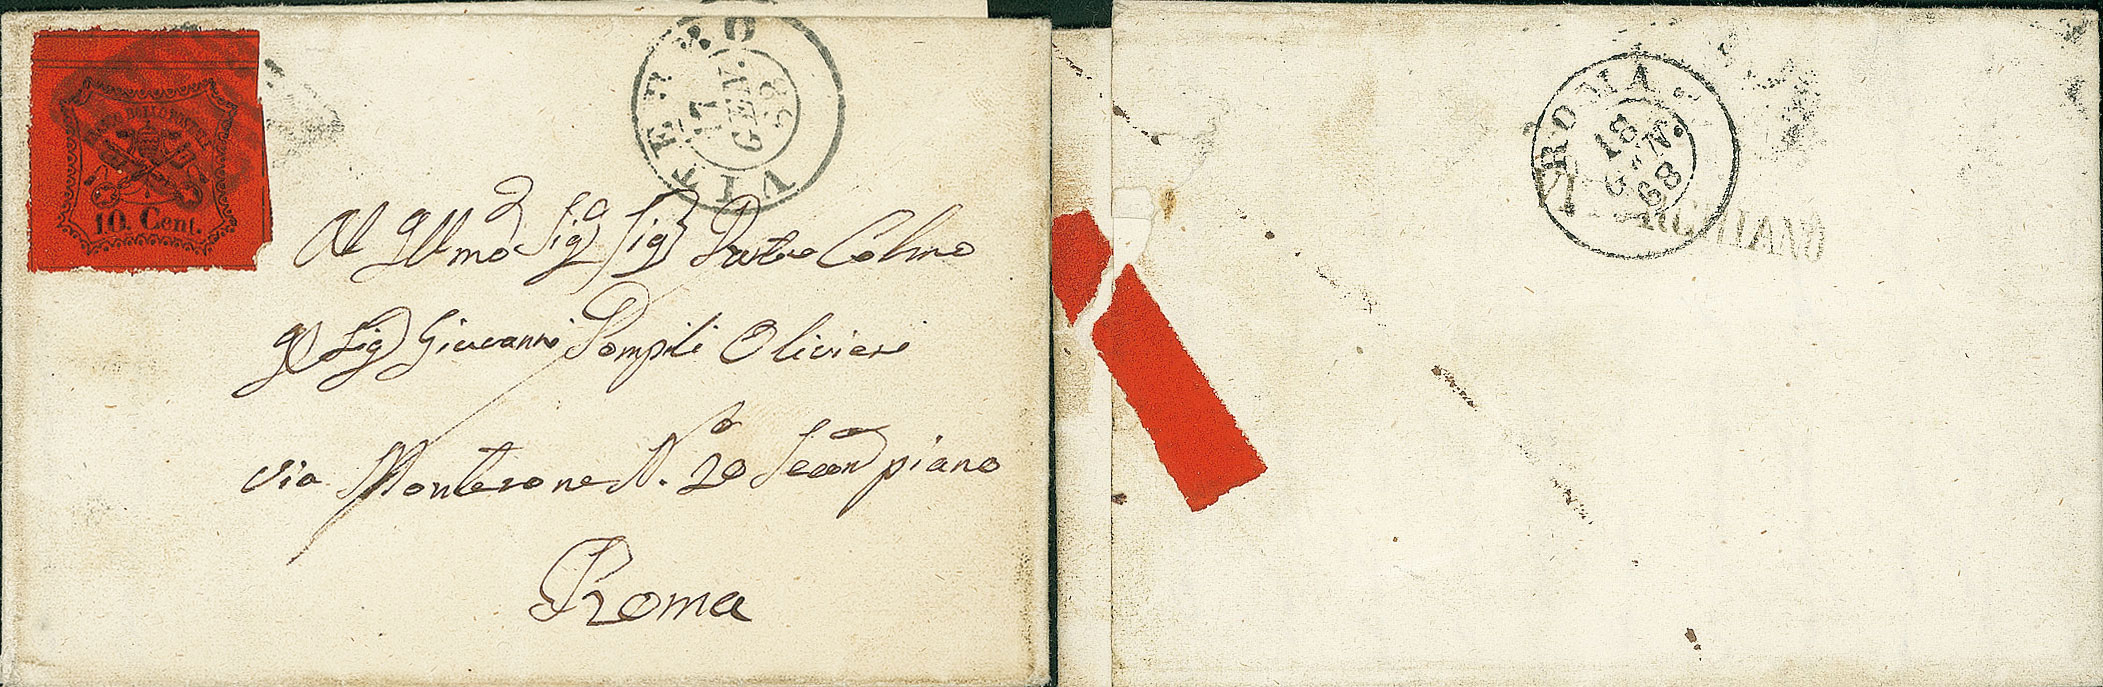 FRANCO BOLLO POSTALE
10. Cent.
VITERBO
17
GEN.
68
Al Illmo Sig Sig
Sig Giovanni Pompili Olivieri
Via Monterone N. 20 Secon piano
Roma
ROMA
18
GEN.
68